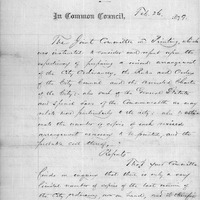 In Common Council, Feb. 26, 187
The Joint Committee on Printing, which
was instructed to consider and report upon the
expediency of preparing a revised arrangement
of the City Ordinances, the Rules and Orders
of the City Council and the Amended Charter
of the City; also such of the General Statutes
and Special Laws of the Commonwealth as may
relate more particularly to the City; also to estimate
the number of copies of such revised
arrangement necessary to be printed, and the
probable cost thereof
Report:
That your Committee
finds on inquiry that there is only a very
limited number of copies of the last edition of
the City ordinances now on hand, and